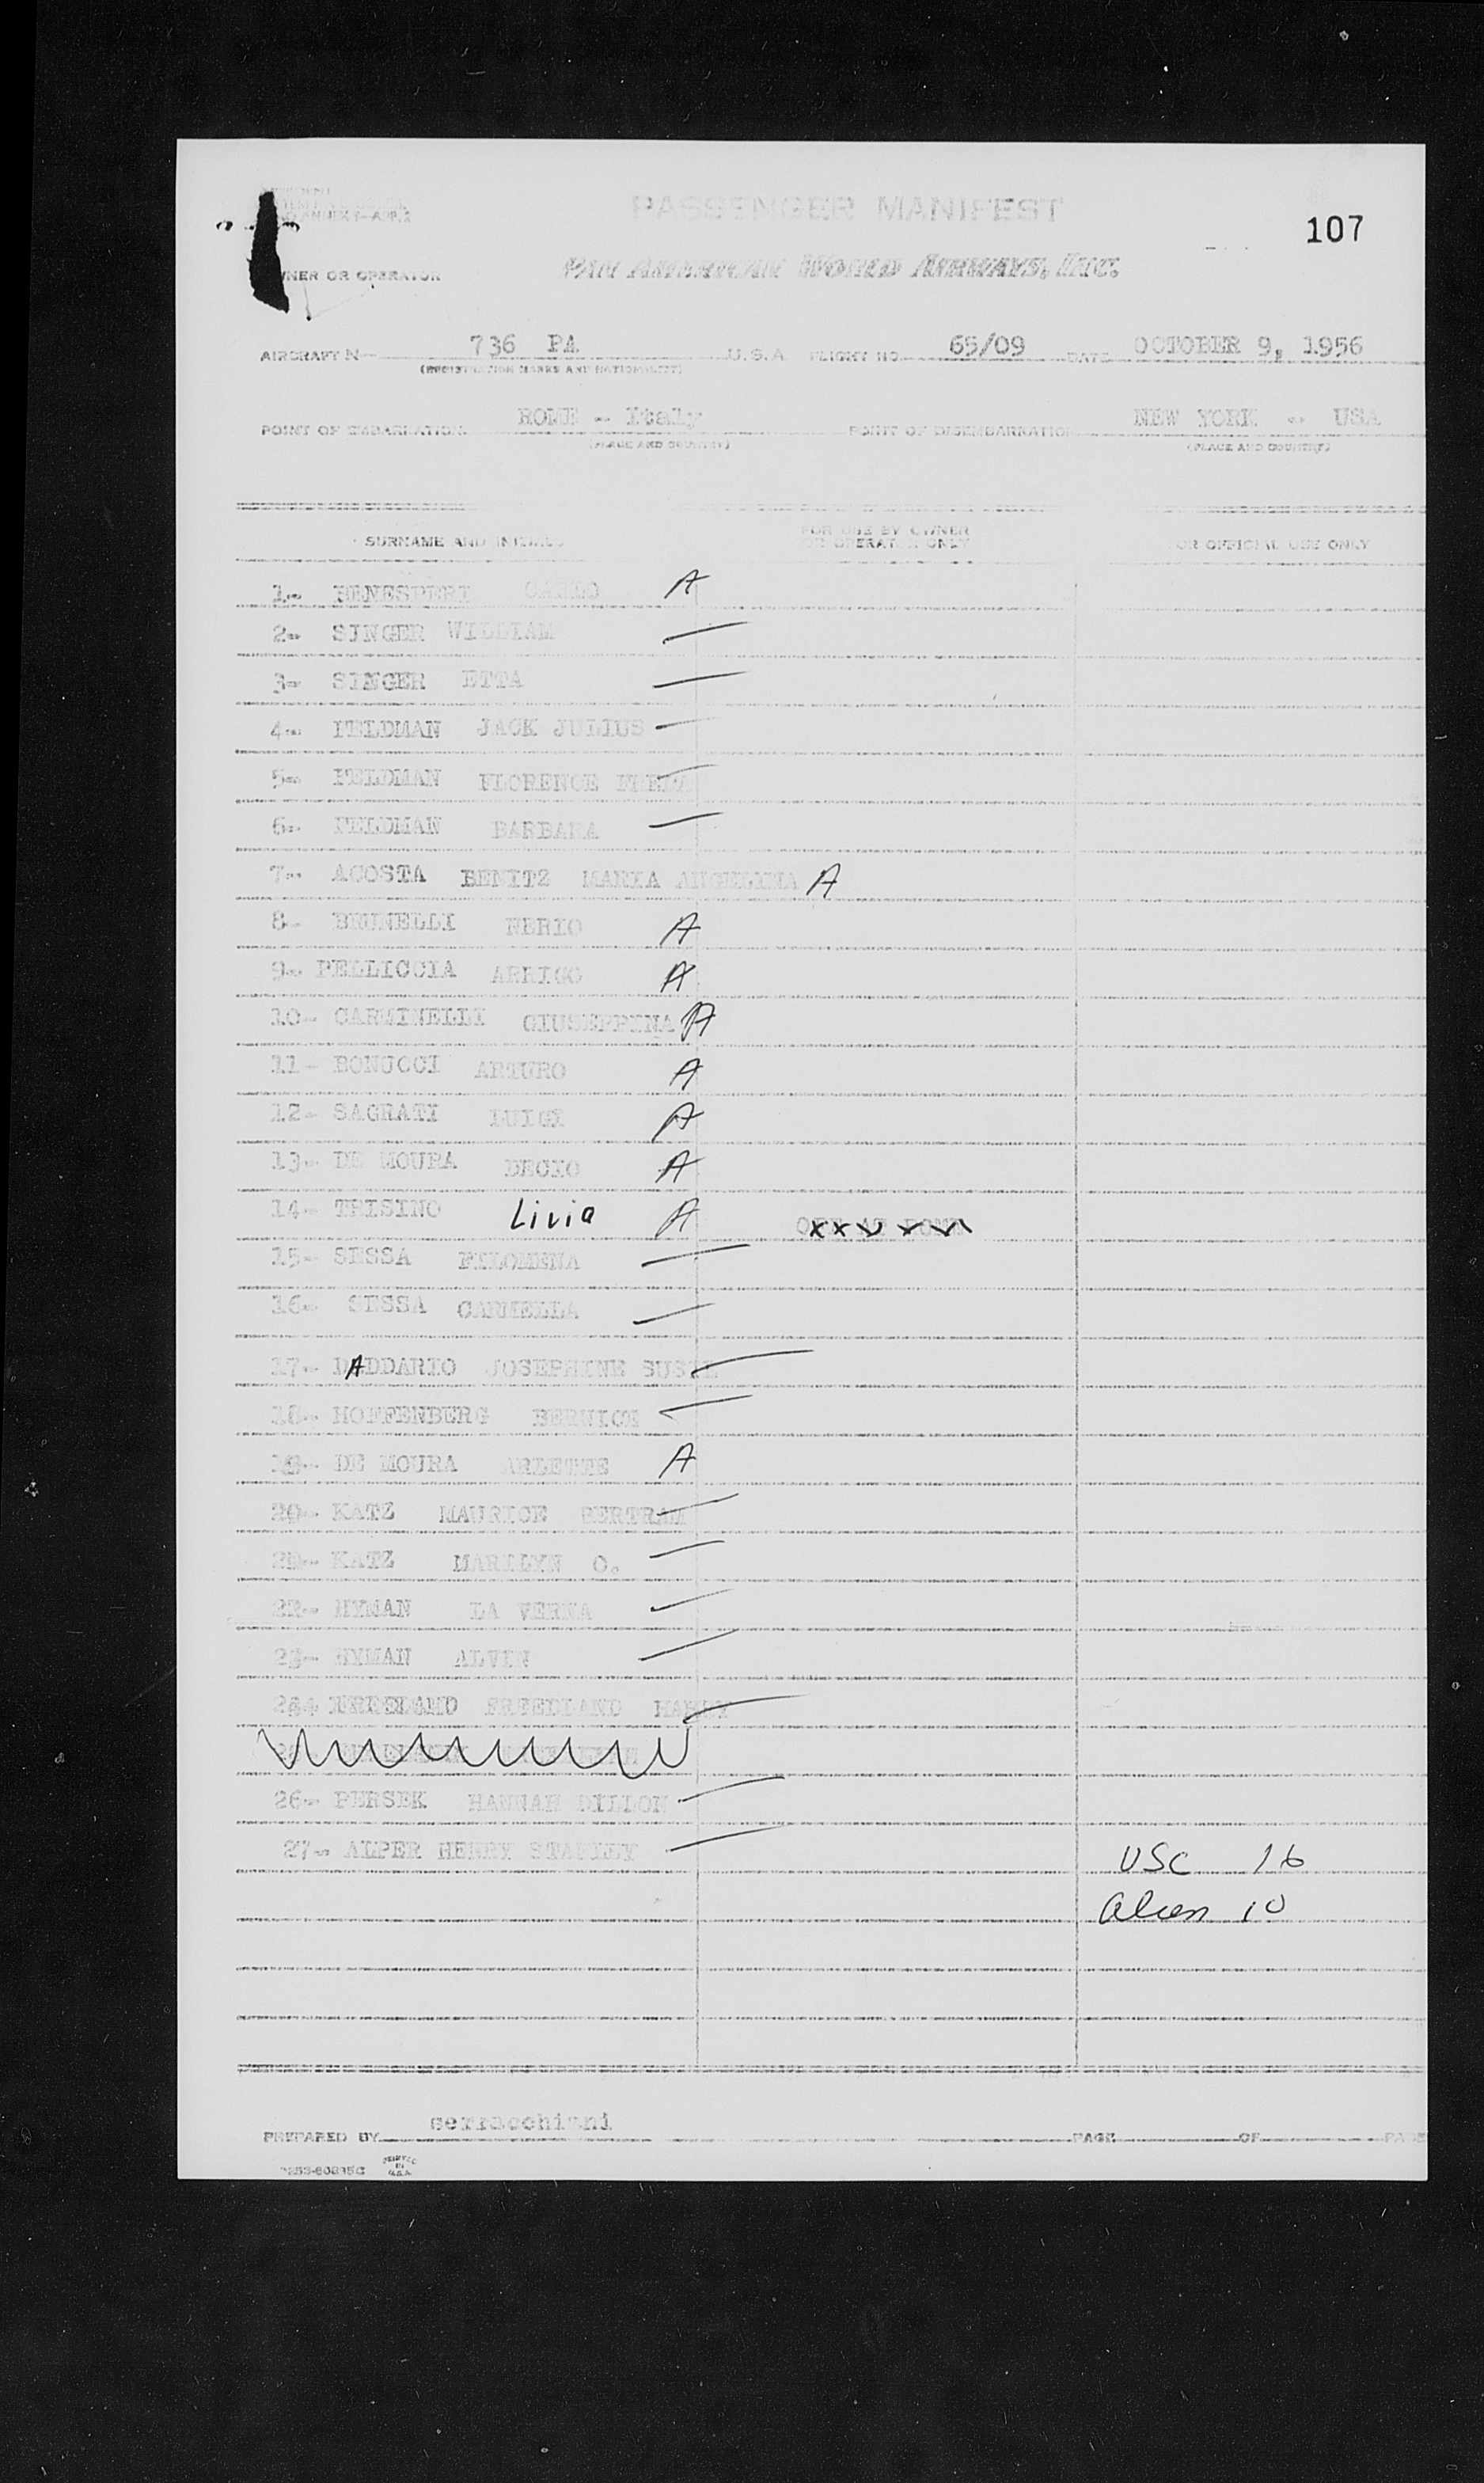 PASSENGER MANIFEST
107
OWNER OR OPERATOR
PAN AMERICAN WORLD AIRWAYS, INC.
AIRCRAFT N 736 PA U.S.A FLIGHT NO. 65/09 DATE OCTOBER 9, 1956
(REGISTRATION MARKS AND NATIONALITY)
POINT OF EMBARKATION ROME - Italy POINT OF DISEMBARKATION NEW YORK - USA
(PLACE AND COUNTRY) (PLACE AND COUNTRY)
SURNAME AND INITIALS FOR USE BY OWNER OR OPERATOR ONLY FOR OFFICIAL USE ONLY
1- BENESPERI CARLO A
2- SINGER WILLIAM
3- SINGER ETTA
4- FELDMAN JACK JULIUS
5- FELDMAN FLORENCE
6- FELDMAN BARBARA
7- ACOSTA BENITZ MARIA ANGELINA A
8- BRUNELLI NERIO A
9- PELLICCIA ARRIGO A
10- CARMINELLI GIUSEPPINA A
11- BONUCCI ARTURO A
12- SAGRATI LUIGI A
13- DE MOURA DECIO A
14- TRISINO Livia A
15- SESSA FILOMENA
16- SESSA CARMELLA
17- DADDARIO JOSEPHINE
18- HOFFENBERG BERNICE
19- DE MOURA ARLETTE A
20- KATZ MAURICE BERTRAM
21- KATZ MARILYN O.
22- HYMAN LA VERNA
23- HYMAN ALVIN
24
26- PERSEK HANNAH DILLON
27- ALPER HENRY STANLEY
USC 16
Alien 10
PREPARED BY serracchiani PAGE OF PAGE
PRINTED IN U.S.A.